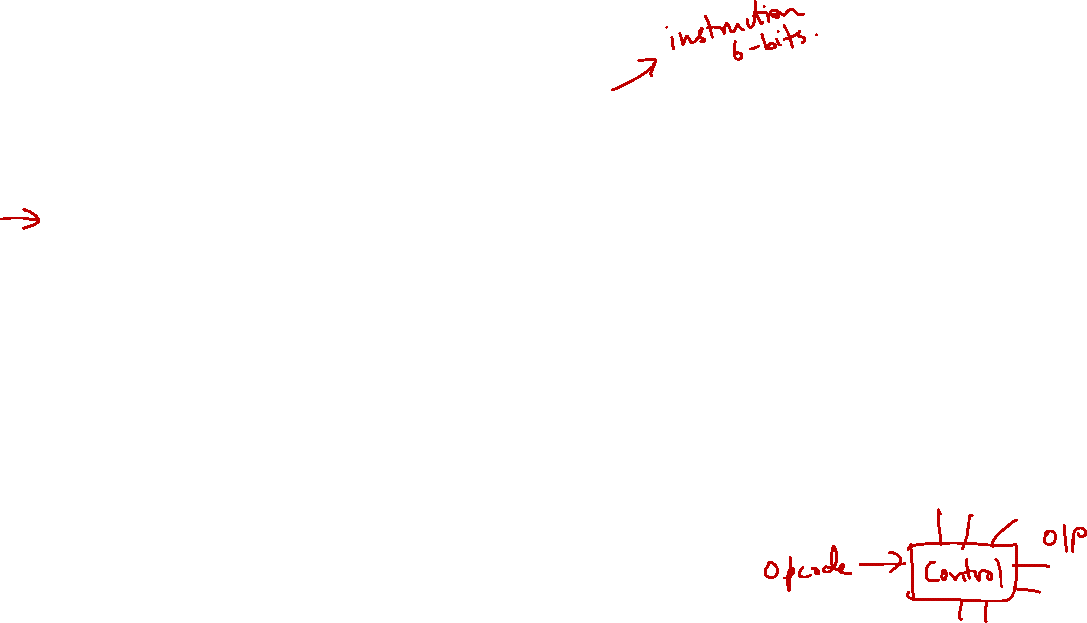 instruction
6-bits.
O/P
Opcode
Control